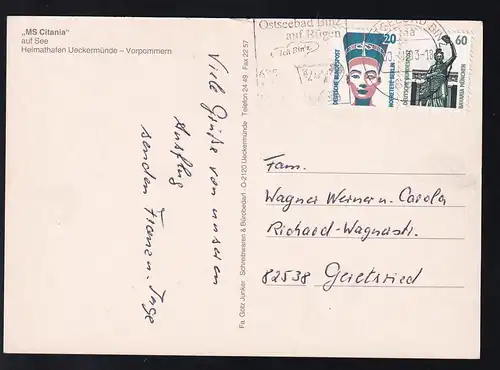 „MS Citania"
auf See
Heimathafen Ueckermünde – Vorpommern
Ostseebad Binz
auf Rügen
20
DEUTSCHE BUNDESPOST
NOFRETETE BERLIN
60
DEUTSCHE BUNDESPOST
BAVARIA MÜNCHEN
Viele Grüße von unseren
Ausflug
senden Franz u. Inge
Fa. Götz Junker · Schreibwaren & Bürobedarf · O-2120 Ueckermünde · Telefon 24 49 · Fax 22 57
Fam.
Wagner Werner u. Carola
Richard-Wagnerstr.
82538 Geretsried